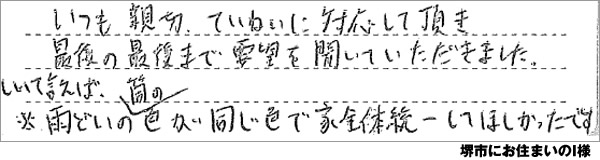 いつも親切、ていねいに対応して頂き
最後の最後まで要望を聞いていただきました。
しいて言えば、筒の
※雨どいの色が同じ色で家全体統一してほしかったです
堺市にお住まいのI様